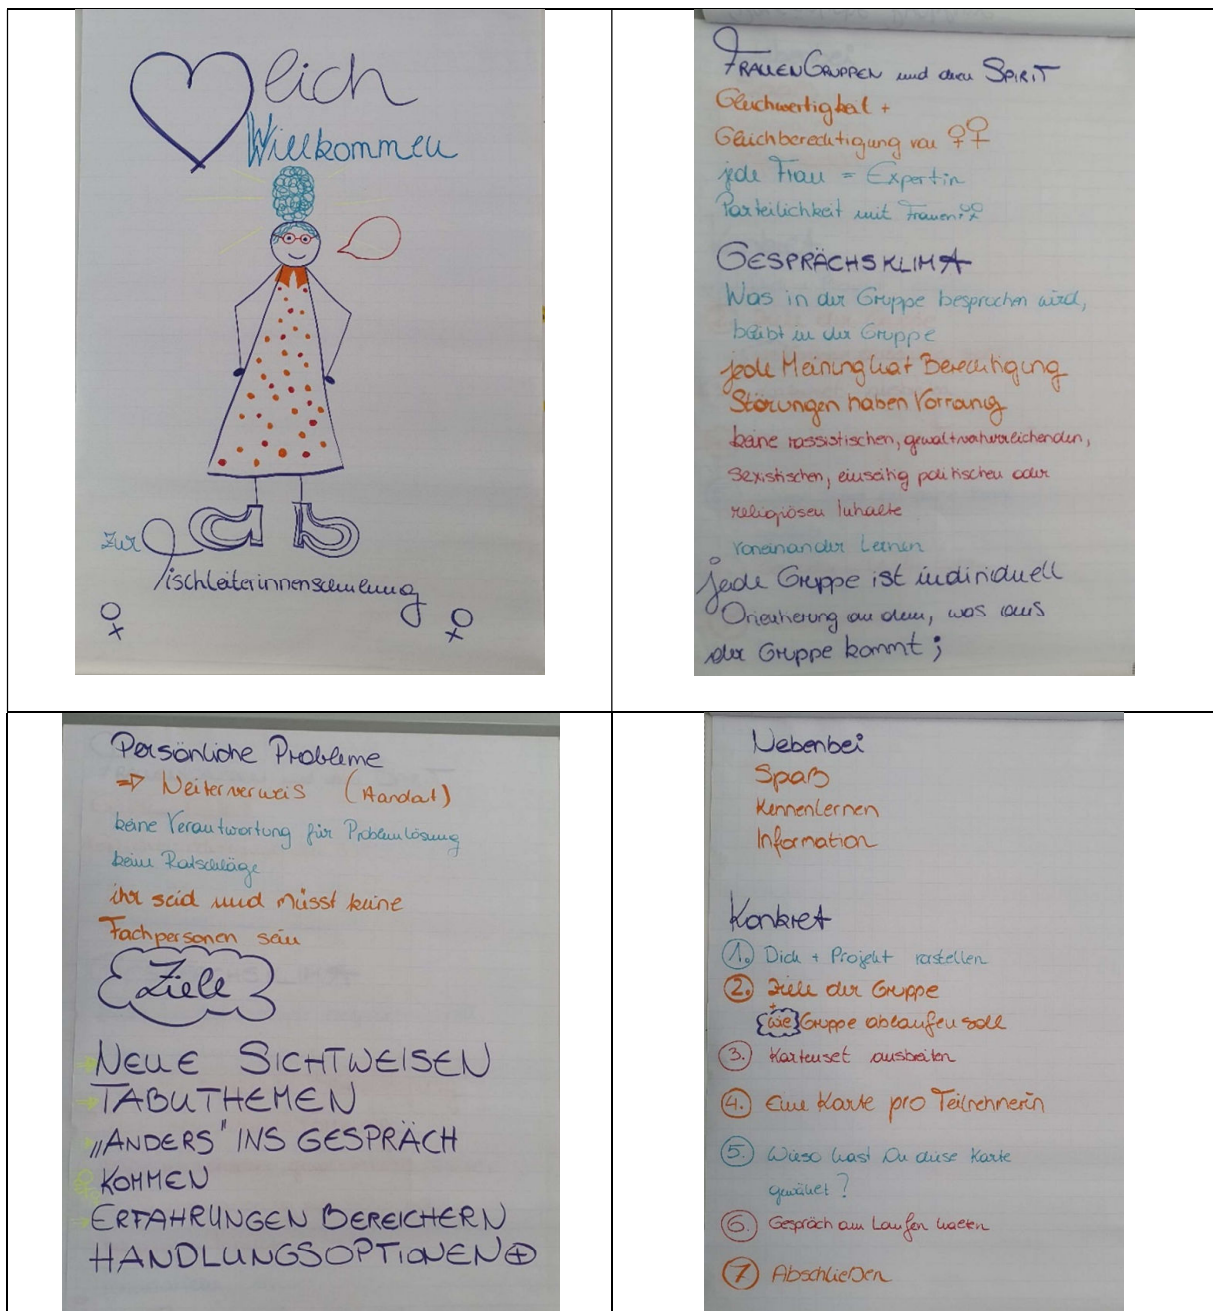 lich
Willkommen
zur
Tischleiterinnenschulung
FRAUENGRUPPEN und deren SPIRIT
Gleichwertigkeit +
Gleichberechtigung von ♀♀
jede Frau = Expertin
Parteilichkeit mit Frauen: ♀♀
GESPRÄCHSKLIMA
Was in der Gruppe besprochen wird,
bleibt in der Gruppe
jede Meinung hat Berechtigung
Störungen haben Vorrang
keine rassistischen, gewaltverherrlichenden,
sexistischen, einseitig politischen oder
religiösen Inhalte
voneinander Lernen
jede Gruppe ist individuell
Orientierung an dem, was aus
der Gruppe kommt;
Persönliche Probleme
⇒ Weiterverweis (Aandat)
keine Verantwortung für Problemlösung
keine Ratschläge
ihr seid und müsst keine
Fachpersonen sein
Ziele
→ NEUE SICHTWEISEN
→ TABUTHEMEN
„ANDERS" INS GESPRÄCH
KOMMEN
→ ERFAHRUNGEN BEREICHERN
HANDLUNGSOPTIONEN ⊕
Nebenbei
Spaß
Kennenlernen
Information
Konkret
1. Dich + Projekt vorstellen
2. Ziele der Gruppe
+
wie Gruppe ablaufen soll
3. Kartenset ausbreiten
4. Eine Karte pro Teilnehmerin
5. Wieso hast Du diese Karte
gewählt?
6. Gespräch am Laufen halten
7 Abschließen